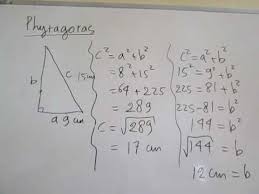 Phytagoras
b
c 15cm
a 9 cm
c² = a² + b²
= 8² + 15²
= 64 + 225
= 289
c = √289
= 17 cm
c² = a² + b²
15² = 9² + b²
225 = 81 + b²
225 - 81 = b²
144 = b²
√144 = b
12 cm = b